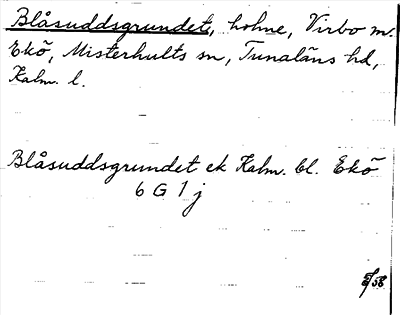 Blåsuddsgrundet, holme, Virbo m.
Ekö, Misterhults sn, Tunaläns hd,
Kalm. l.
Blåsuddsgrundet ek Kalm. bl. Ekö
6 G 1 j